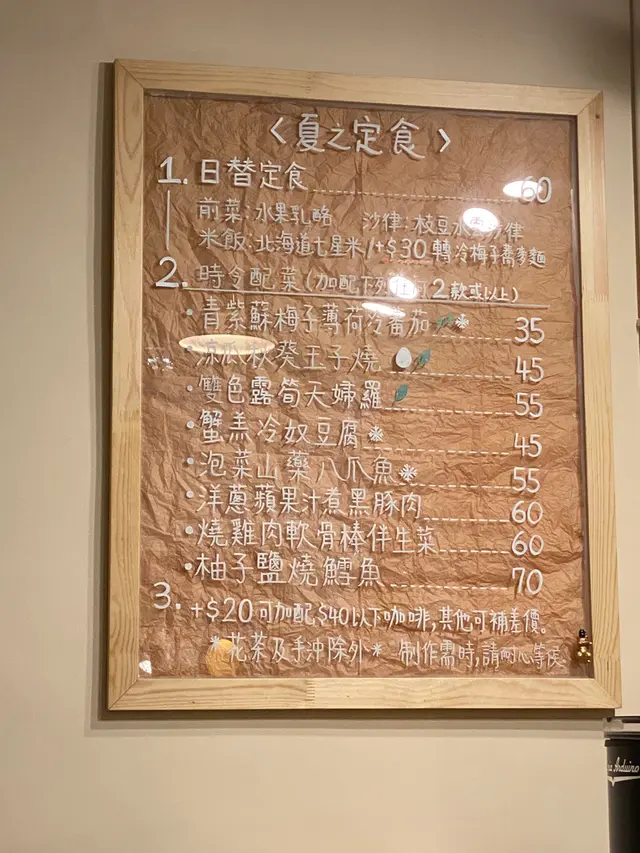 〈夏之定食〉
1. 日替定食 60
前菜:水果乳酪 沙律:枝豆水沙律
米飯:北海道七星米/+$30 轉冷梅子蕎麥麵
2. 時令配菜(加配下列任何2款或以上)
·青紫蘇梅子薄荷冷番茄 35
·涼瓜秋葵玉子燒 45
·雙色露筍天婦羅 55
·蟹羔冷奴豆腐 45
·泡菜山藥八爪魚 55
·洋蔥蘋果汁煮黑豚肉 60
·燒雞肉軟骨棒伴生菜 60
·柚子鹽燒鱈魚 70
3. +$20可加配$40以下咖啡,其他可補差價。
*花茶及手沖除外* 制作需時,請耐心等侯
Arduino